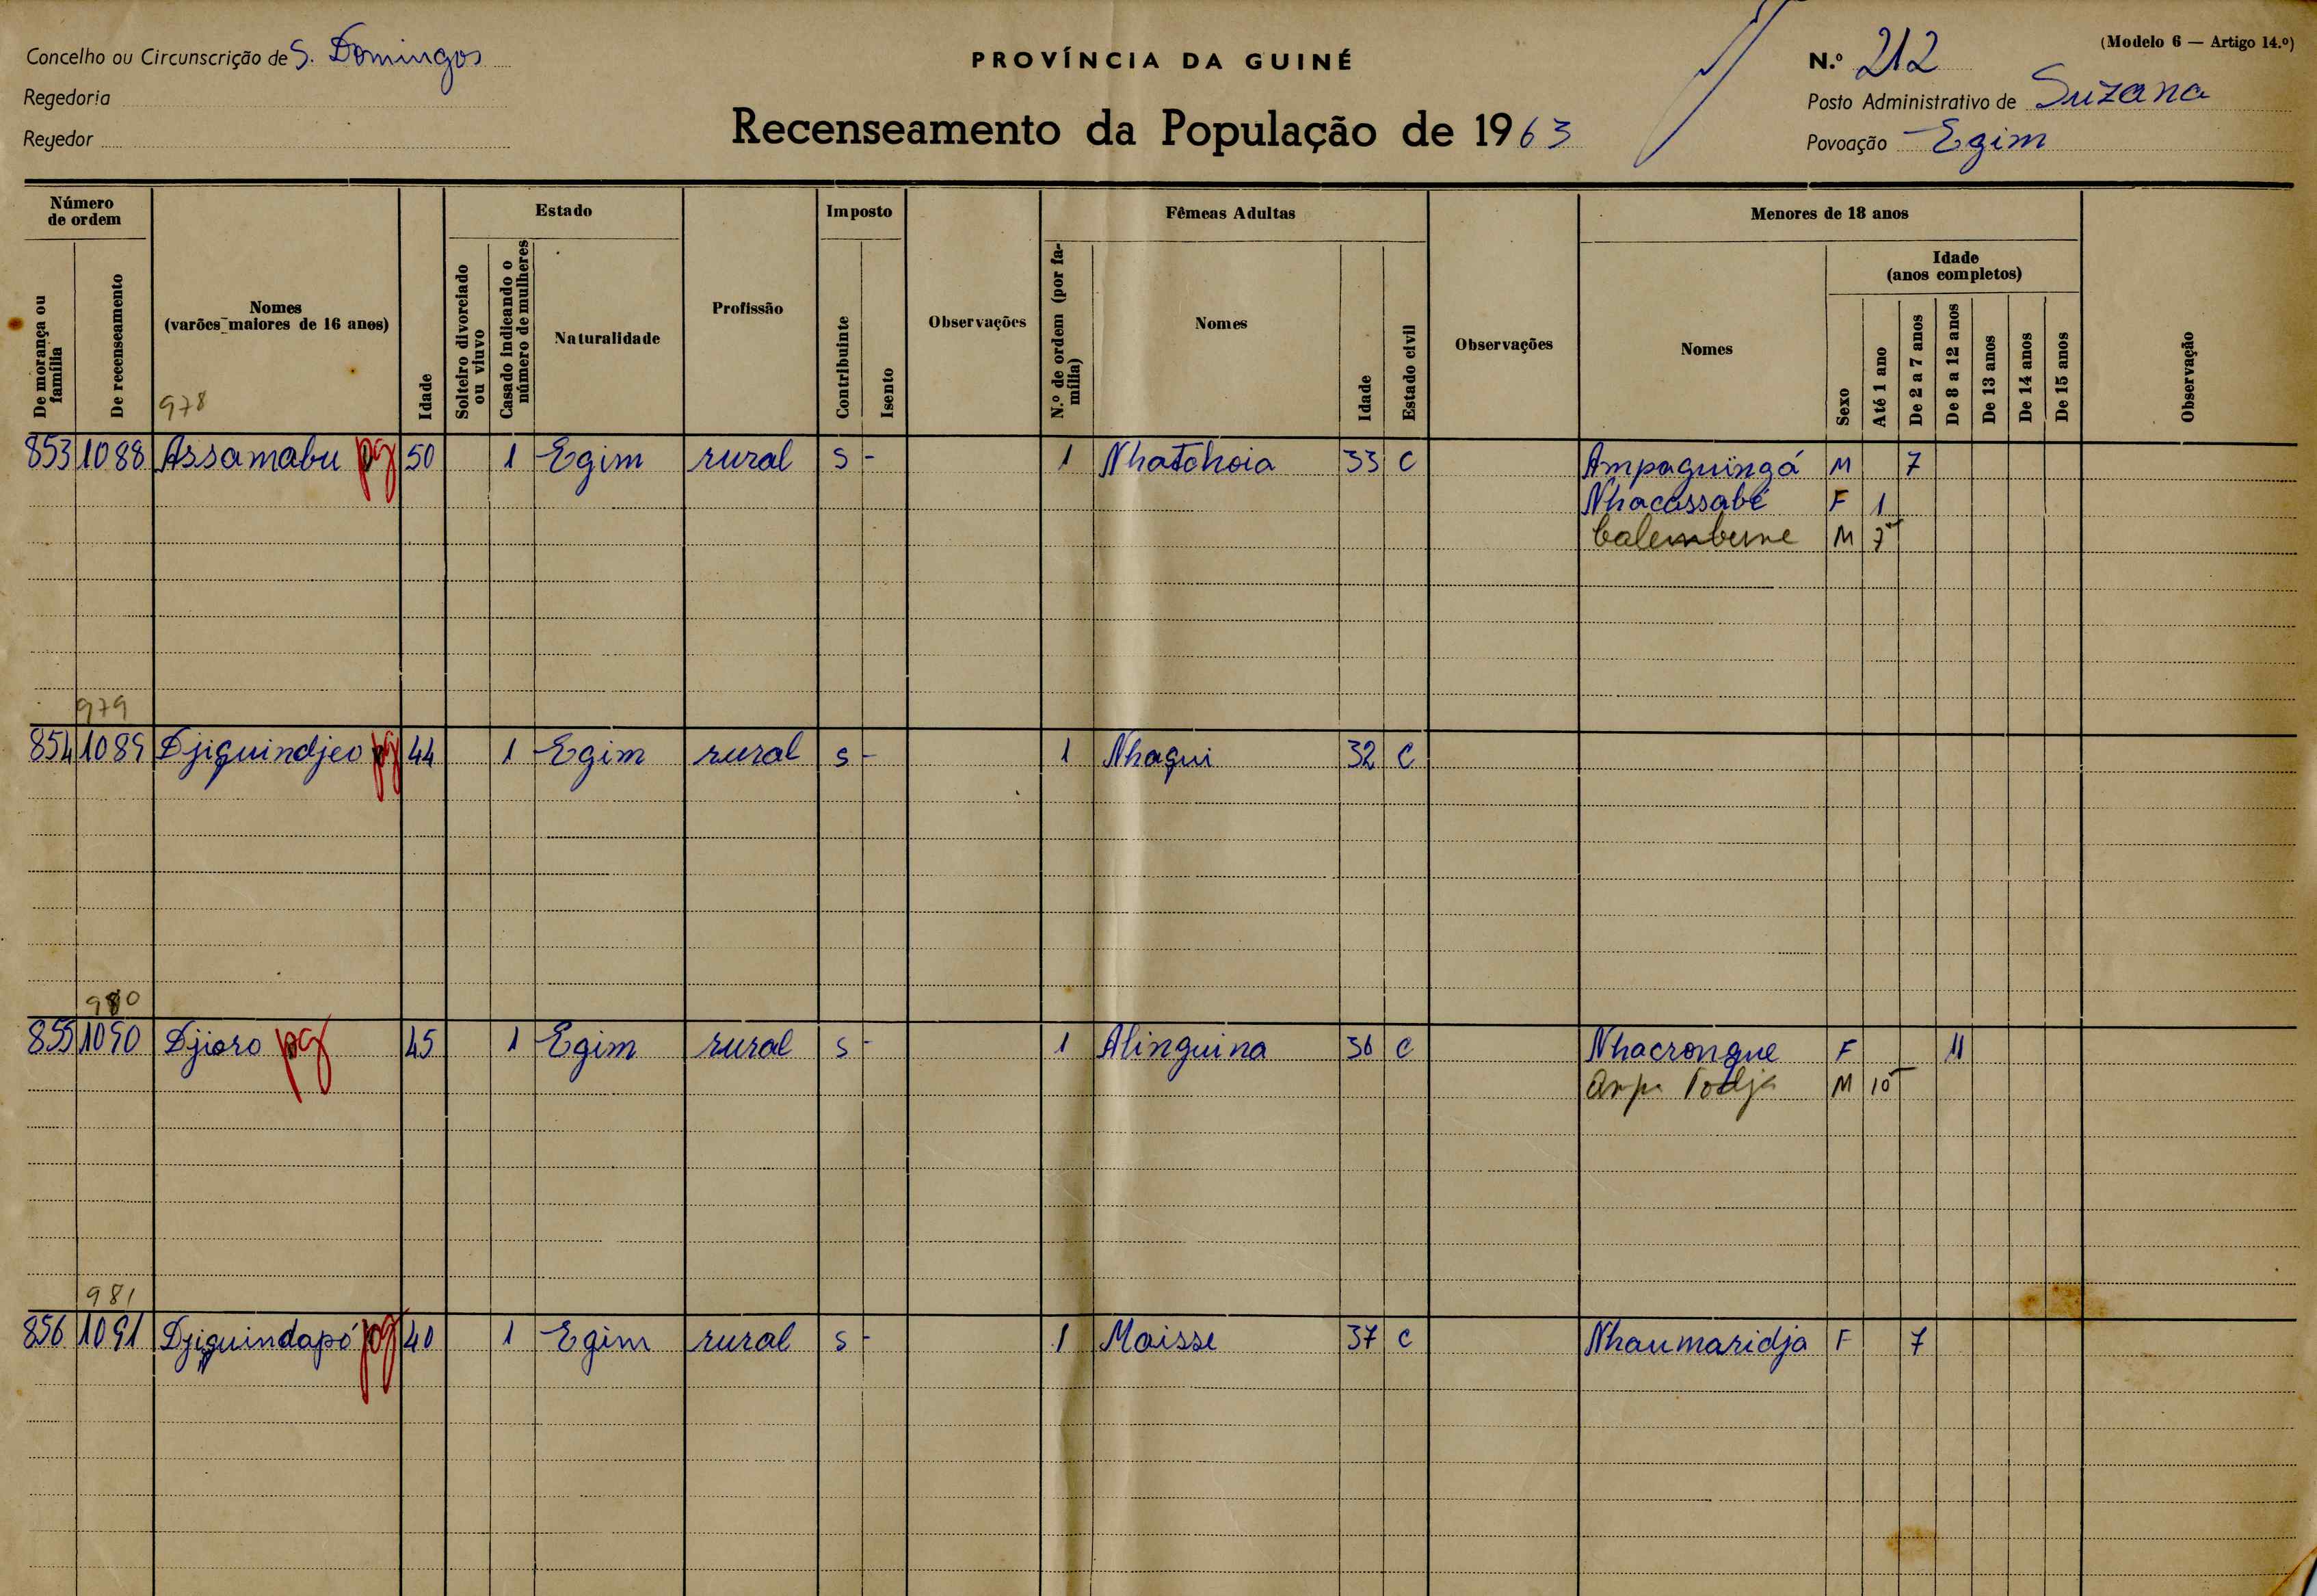 Concelho ou Circunscrição de S. Domingos
Regedoria
Regedor
PROVÍNCIA DA GUINÉ
Recenseamento da População de 1963
(Modelo 6 — Artigo 14.º)
N.º 212
Posto Administrativo de Suzana
Povoação Egim
Número de ordem
De morança ou família
De recenseamento
Nomes
(varões maiores de 16 anos)
978
Idade
Estado
Solteiro divorciado ou viuvo
Casado indicando o número de mulheres
Naturalidade
Profissão
Imposto
Contribuinte
Isento
Observações
Fêmeas Adultas
N.º de ordem (por família)
Nomes
Idade
Estado civil
Observações
Menores de 18 anos
Nomes
Sexo
Idade
(anos completos)
Até 1 ano
De 2 a 7 anos
De 8 a 12 anos
De 13 anos
De 14 anos
De 15 anos
Observação
853 1088 Assamabu pg 50 1 Egim rural s - 1 Nhatchoia 33 C Ampaguingá M 7
Nhacassabé F 1
M 7
979
854 1089 Djiguindjeo pg 44 1 Egim rural s - 1 Nhagui 32 C
980
855 1090 Djioro pg 45 1 Egim rural s - 1 Alinguina 36 C Nhacrongue F 11
M 10
981
856 1091 Djiguindapó pg 40 1 Egim rural s - 1 Maisse 37 C Nhaumaridja F 7